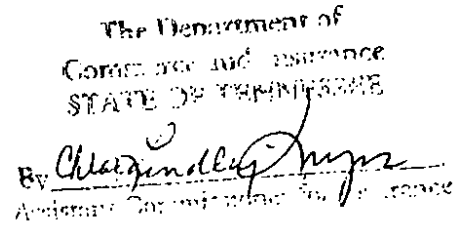 The Department of
Commerce and Insurance
STATE OF TENNESSEE
By
Assistant Commissioner for Insurance